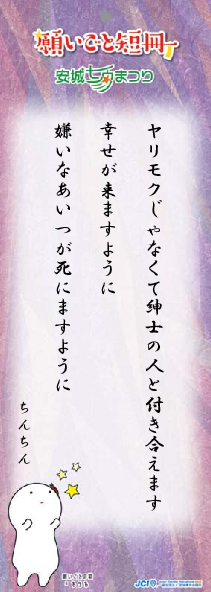 願いごと短冊
安城七夕まつり
ヤリモクじゃなくて紳士の人と付き合えます
幸せが来ますように
嫌いなあいつが死にますように
ちんちん
願いごと短冊
JCI